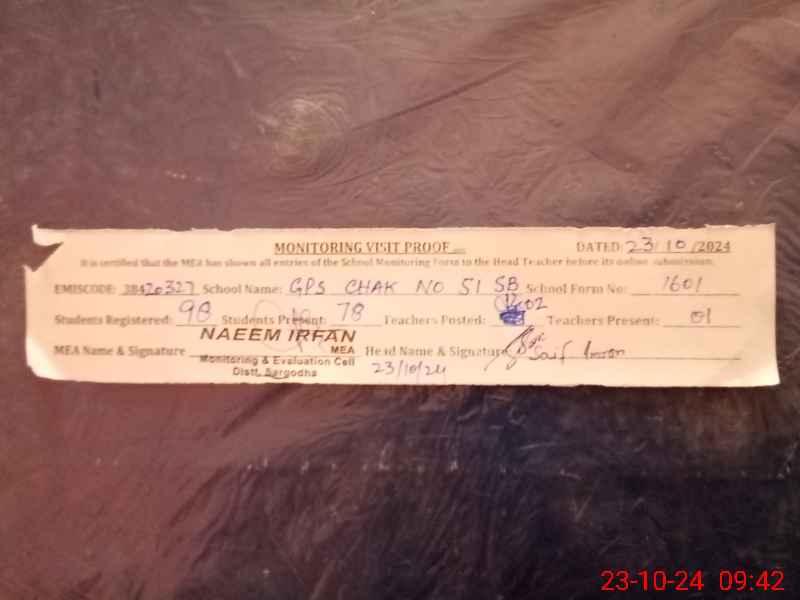 MONITORING VISIT PROOF DATED: 23/10/2024
It is certified that the MEA has shown all entries of the School Monitoring Form to the Head Teacher before its online submission.
EMISCODE: 38420327 School Name: GPS CHAK NO 51 SB School Form No: 1601
Students Registered: 98 Students Present: 78 Teachers Posted: 02 Teachers Present: 01
NAEEM IRFAN
MEA Name & Signature MEA Head Name & Signature Saif Imran
Monitoring & Evaluation Cell 23/10/24
Distt. Sargodha
23-10-24 09:42